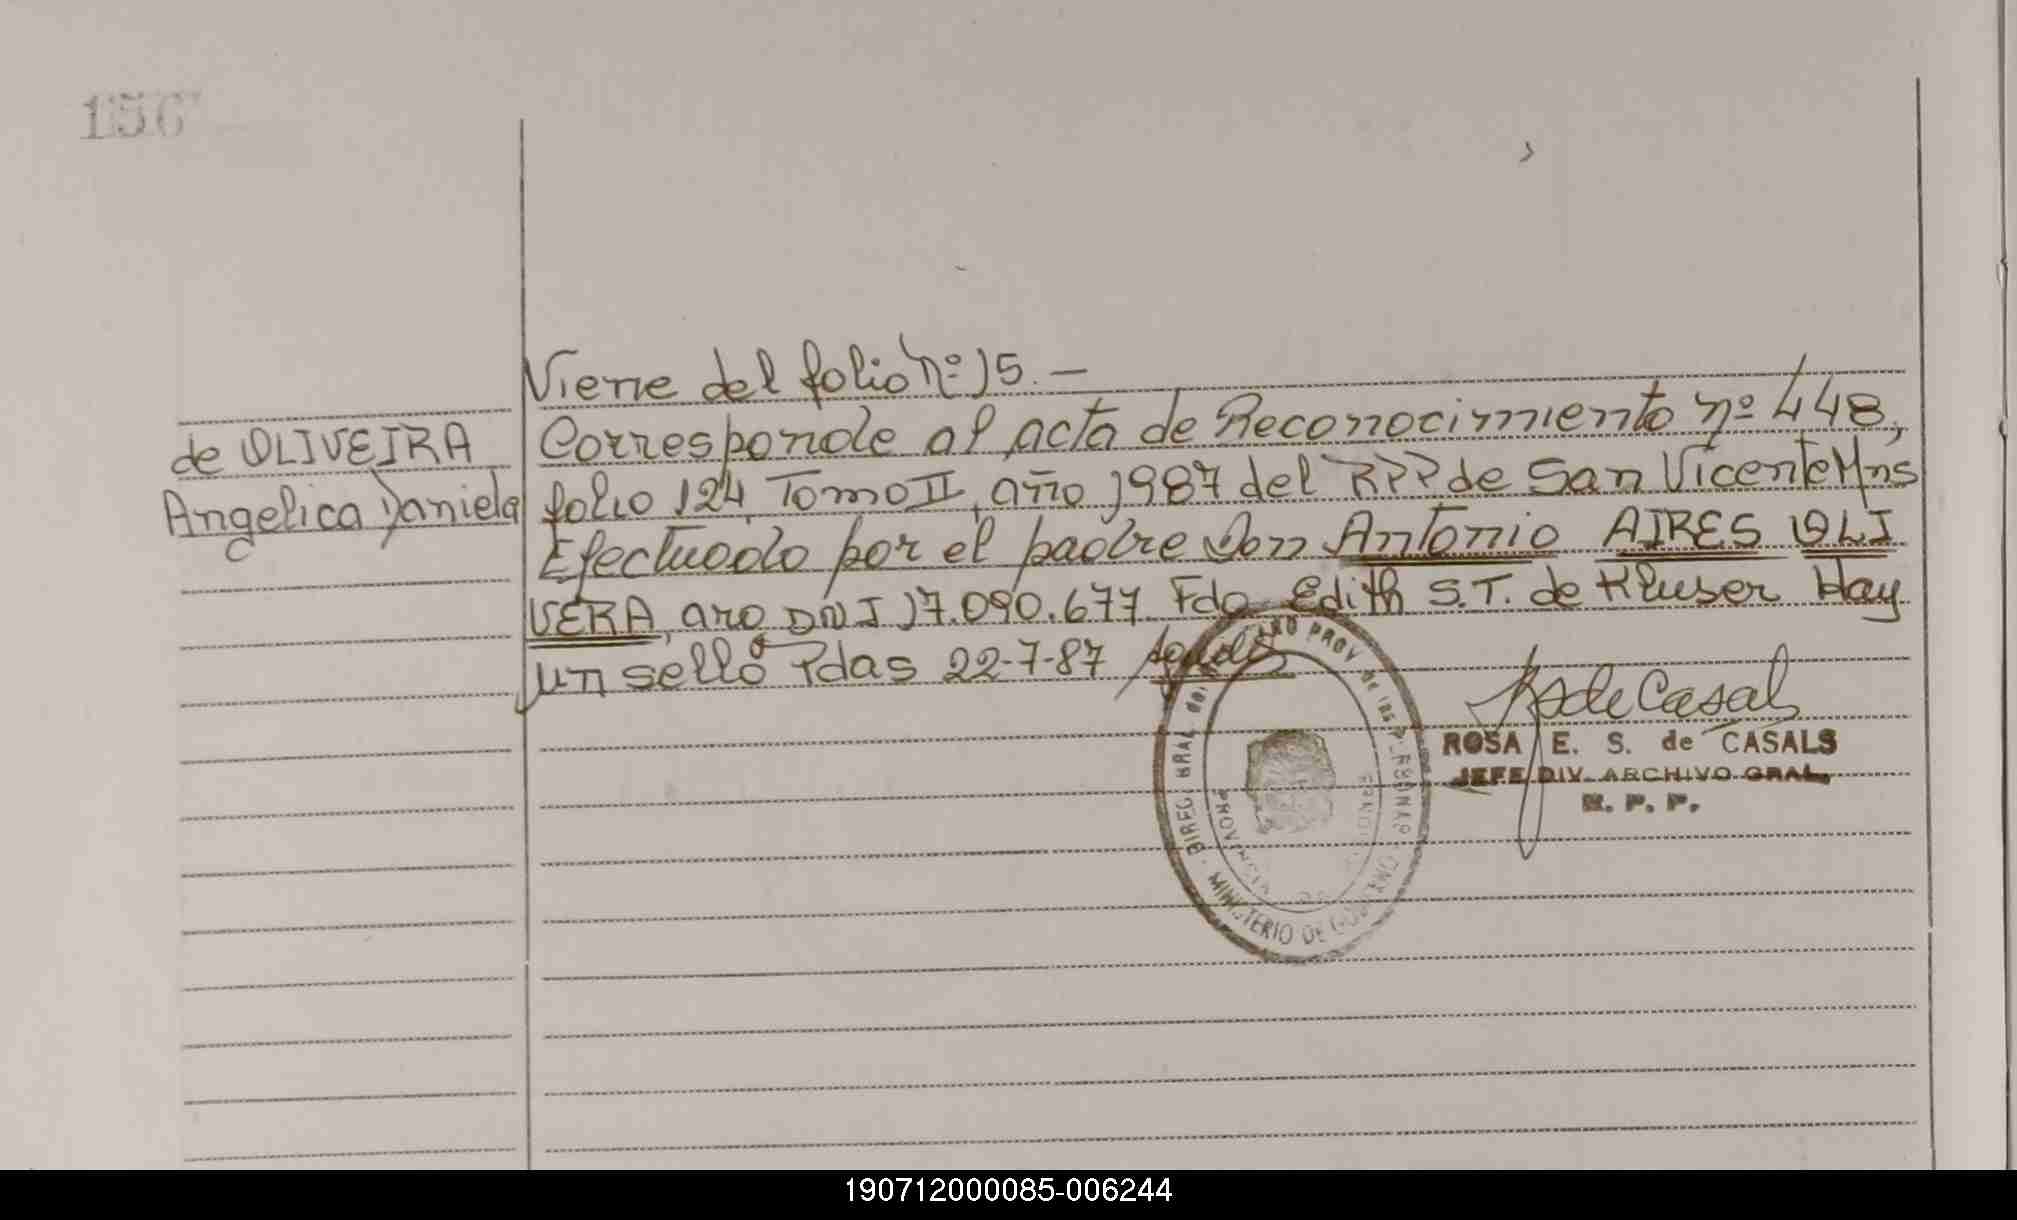 156
Viene del folio nº 15.—
de OLIVEIRA
Angelica Daniela
Corresponde al acta de Reconocimiento nº 448,
folio 124, Tomo II, año 1987 del RPP de San Vicente Mns
Efectuado por el padre Don Antonio AIRES OLI
VERA, arg DNI 17.090.677. Fdo Edith S.T. de Kluser Hay
un sello Pdas 22-7-87
DIREC. GRAL. DEL PROV. DE LAS PERSONAS
MINISTERIO DE GOBIERNO
PROVINCIA DE
RsdeCasals
ROSA E. S. de CASALS
JEFE DIV. ARCHIVO GRAL.
R. P. P.
190712000085-006244